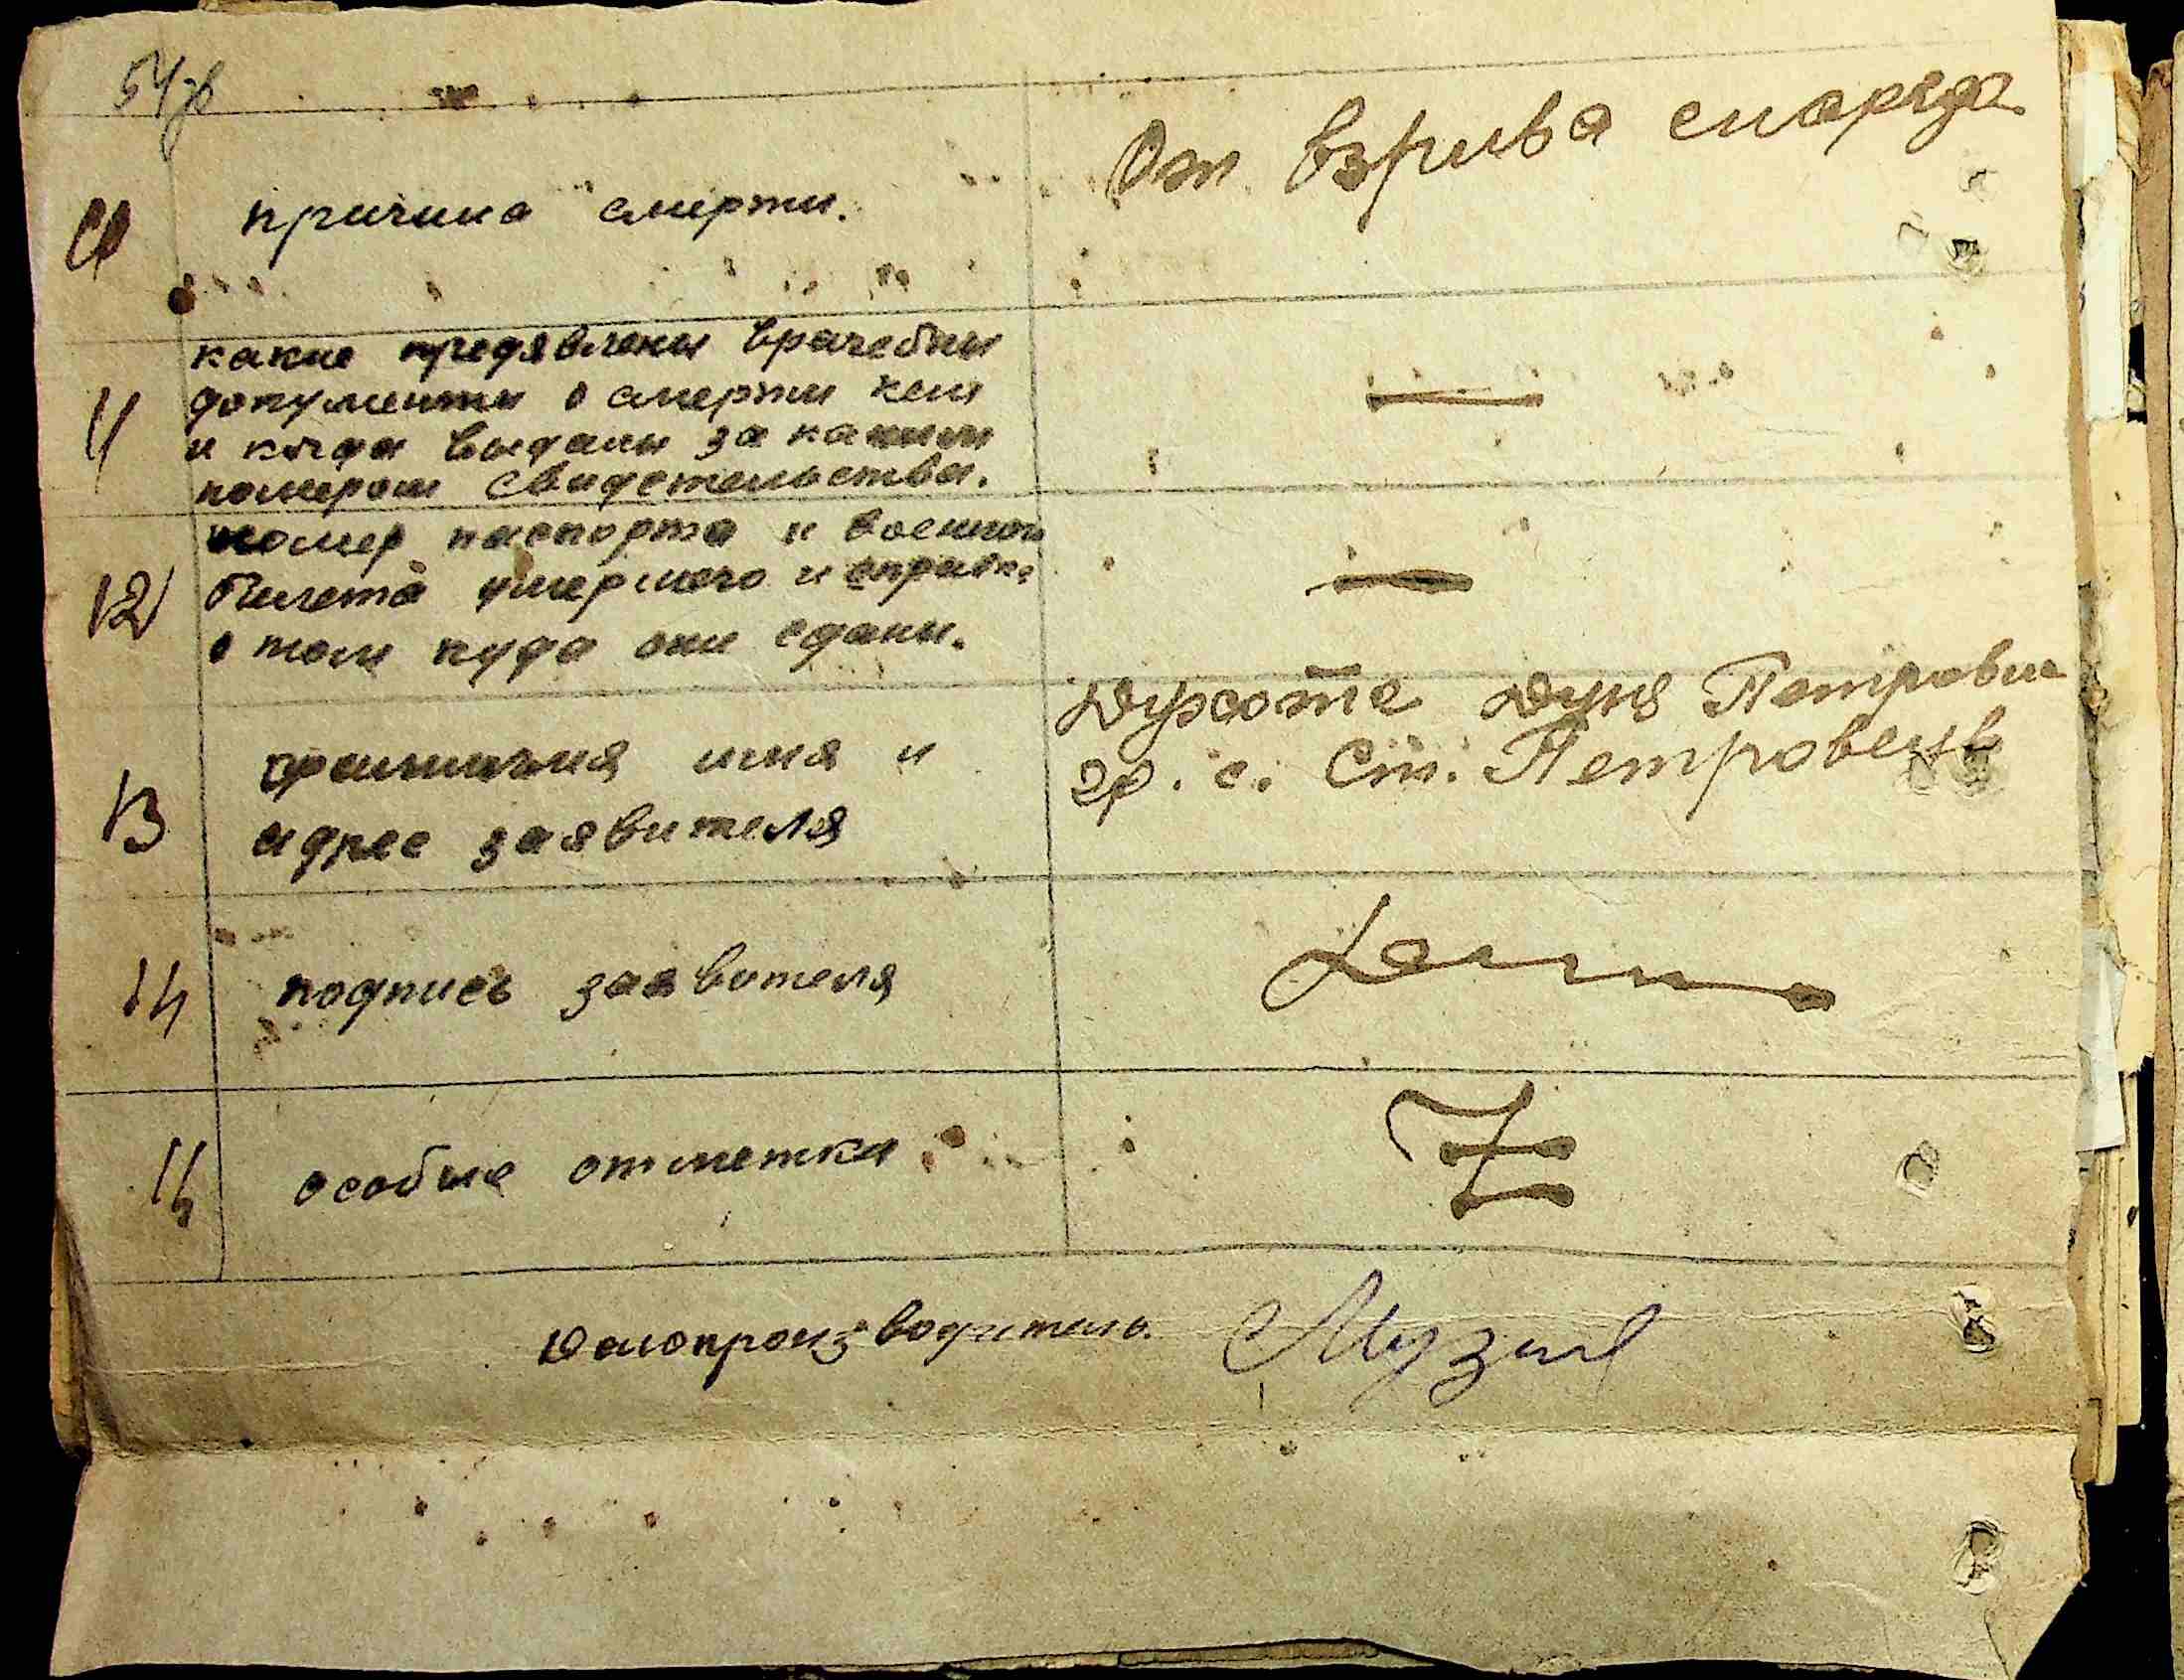 54об
10 причина смерти. От взрыва снаряда
какие предявлены врачебны
11 документы о смерти кем
и когда выданы за каким
номером свидетельства. —
номер паспорта и военного
12 билета умершего и справк.
о том куда они сданы. —
13 фамилия имя и
адрес заявителя
Дуня Петровна
гр. с. Ст. Петровец
14 подпись заявителя
15 особые отметки
Делопроизводитель